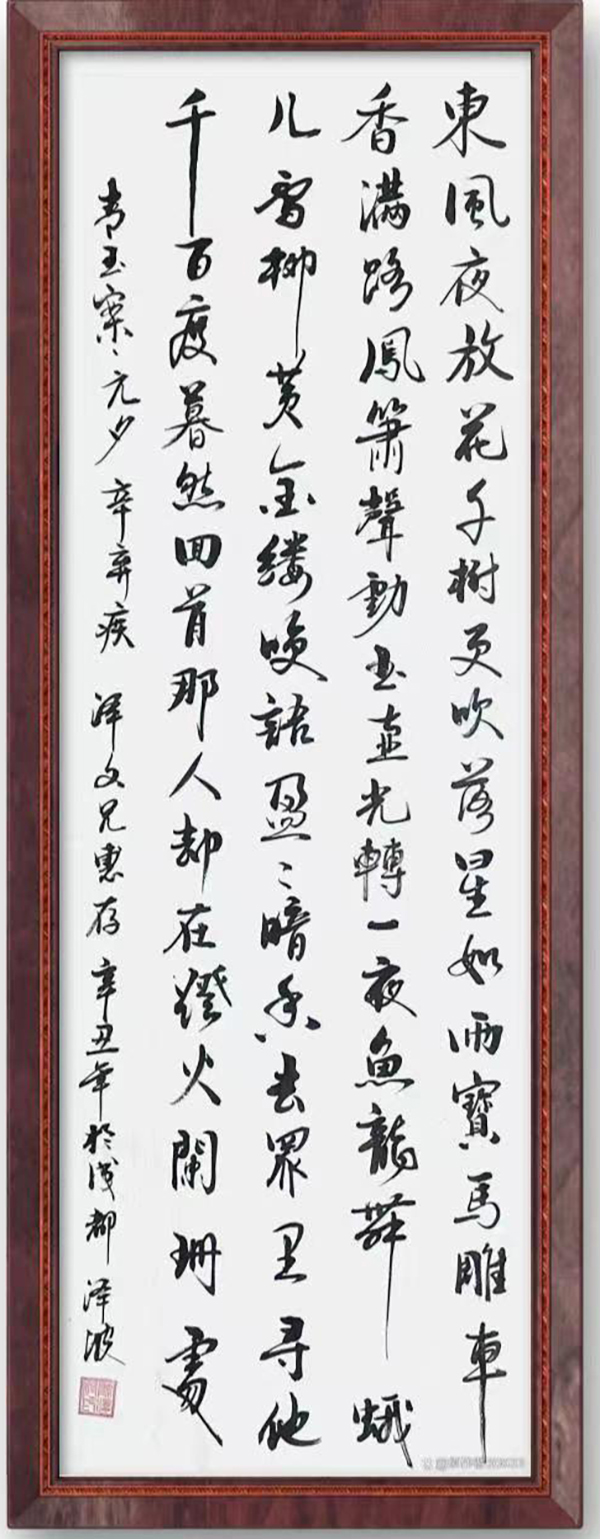 東風夜放花千樹更吹落星如雨寶馬雕車
香滿路鳳簫聲動玉壺光轉一夜魚龍舞蛾
儿雪柳黄金缕笑語盈〻暗香去眾里寻他
千百度暮然回首那人却在燈火闌珊處
青玉案〻元夕 辛弃疾 泽文兄惠存 辛丑年於成都 泽波